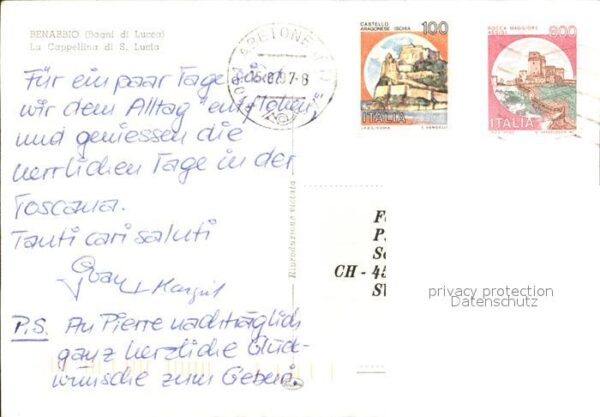 BENABBIO (Bagni di Lucca)
La Cappellina di S. Lucia
Für ein paar Tage sind
wir dem Alltag "entflohen"
und geniessen die
herrlichen Tage in der
Toscana.
Tanti cari saluti
+ Margrit
P.S. An Pierre nachträglich
ganz herzliche Glück-
wünsche zum Geburt.
Riproduzione vietata
CASTELLO
ARAGONESE ISCHIA
100
ITALIA
ROCCA MAGGIORE
ASSISI
800
ITALIA
CH - 45
privacy protection
Datenschutz